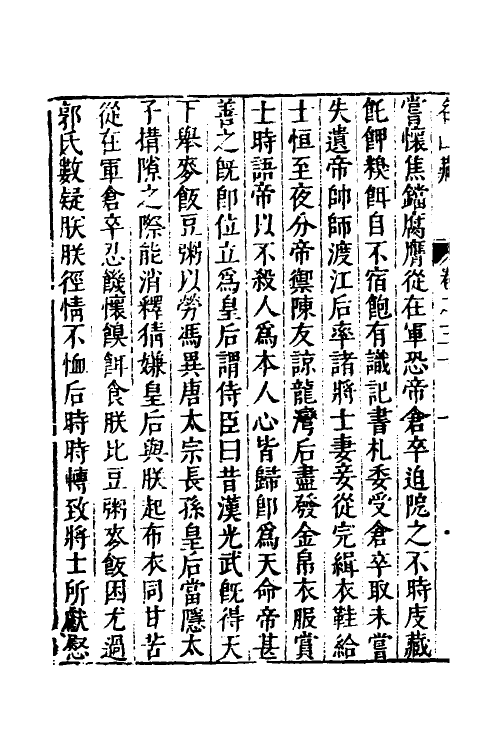 名山藏 卷之三十 一
嘗懷焦鐺腐膺從在軍恐帝倉卒迫阨之不時庋藏
飥餌糗餌自不宿飽有識記書札委受倉卒取未嘗
失遺帝帥師渡江后率諸將士妻妾從完緝衣鞋給
士恒至夜分帝禦陳友諒龍灣后盡發金帛衣服賞
士時語帝以不殺人爲本人心皆歸卽爲天命帝甚
善之旣卽位立爲皇后謂侍臣曰昔漢光武旣得天
下舉麥飯豆粥以勞馮異唐太宗長孫皇后當隱太
子搆隙之際能消釋猜嫌皇后與朕起布衣同甘苦
從在軍倉卒忍饑懷糗餌食朕比豆粥麥飯困尤過
郭氏數疑朕朕徑情不恤后時時轉致將士所獻慰